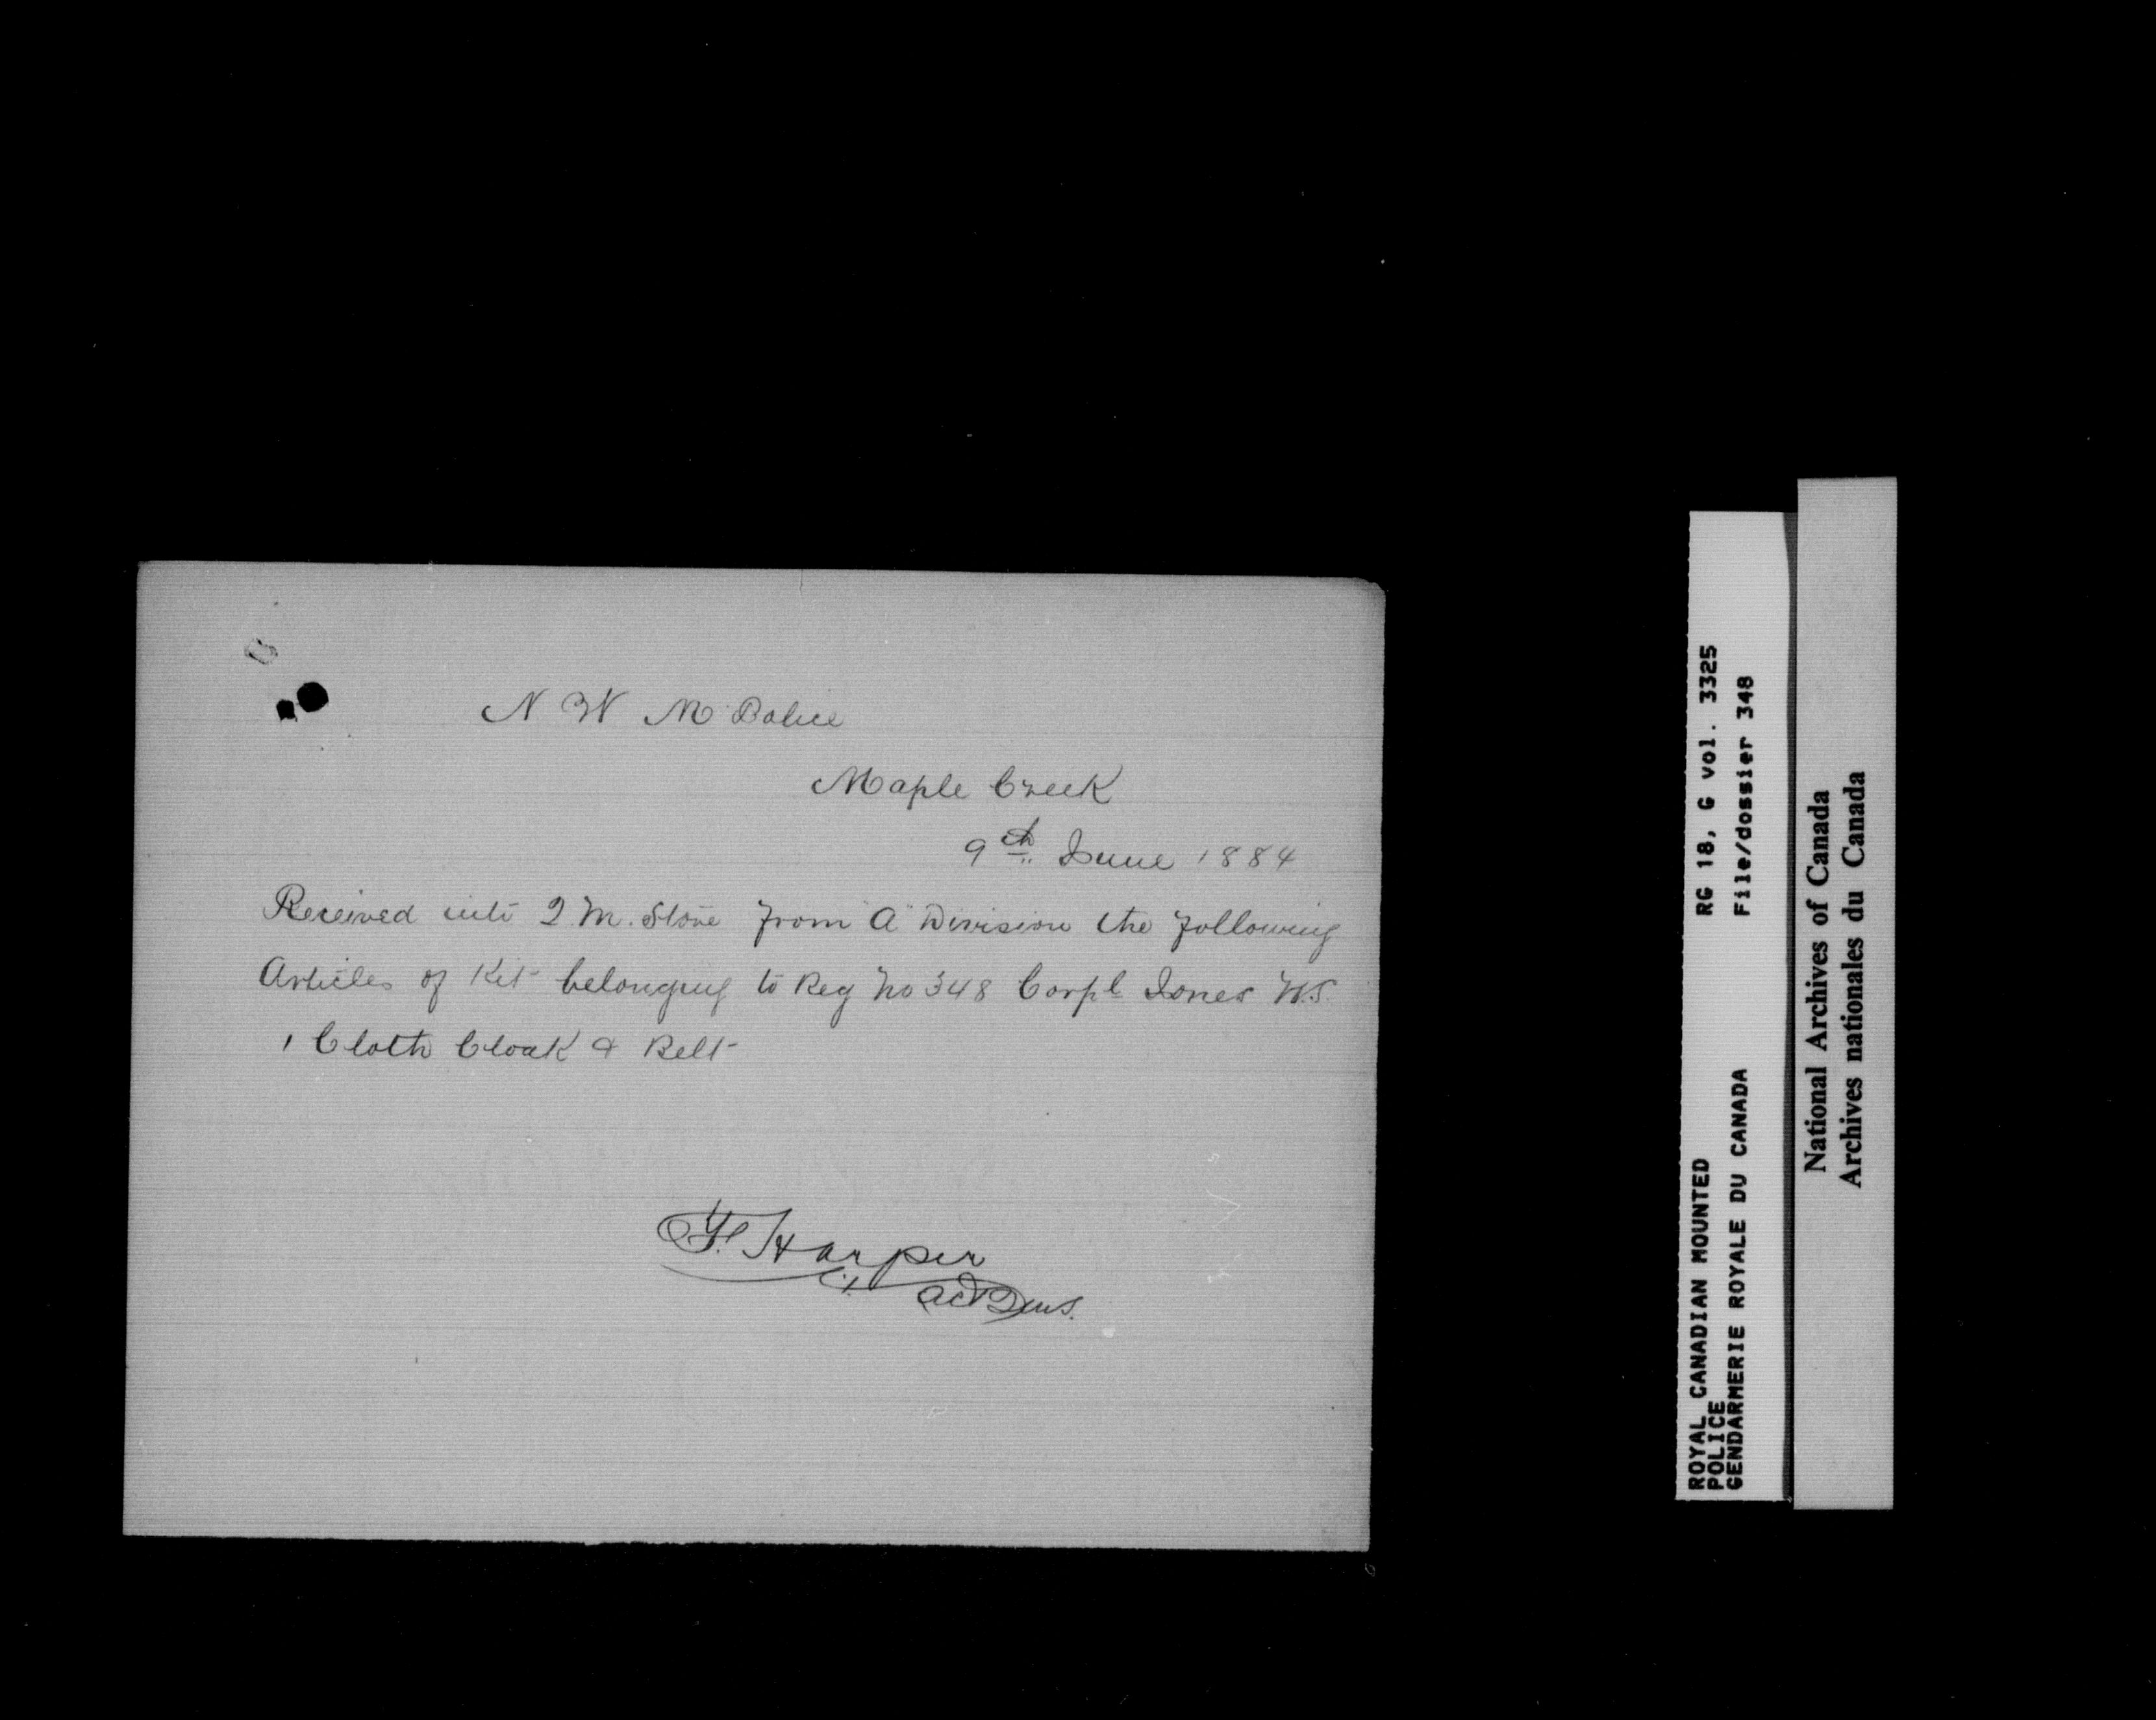 N W M Police
Maple Creek
9th June 1884
Received into Q. M. Store from "A" Division the following
Articles of Kit belonging to Reg No 348 Corpl Jones W.S.
1 Cloth Cloak & Belt
F. Harper
RG 18, G vol. 3325
File/dossier 348
ROYAL CANADIAN MOUNTED
POLICE
GENDARMERIE ROYALE DU CANADA
National Archives of Canada
Archives nationales du Canada